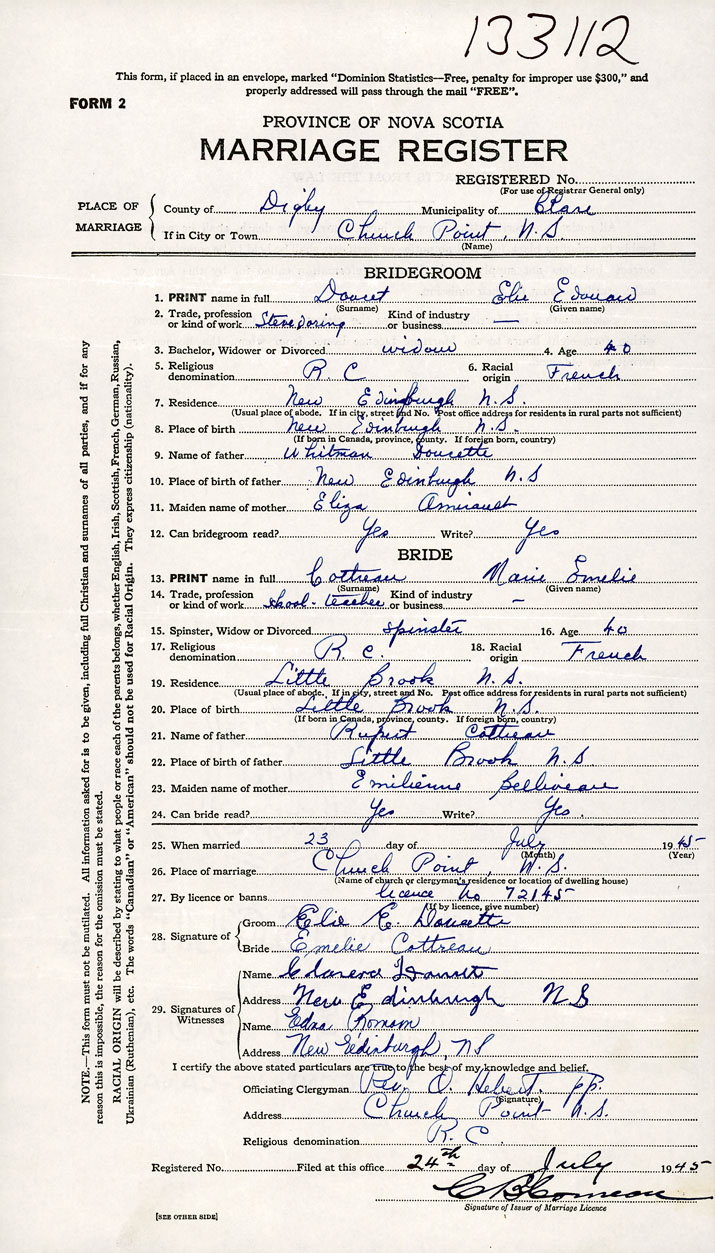 133112
This form, if placed in an envelope, marked "Dominion Statistics—Free, penalty for improper use $300," and
properly addressed will pass through the mail "FREE".
FORM 2
PROVINCE OF NOVA SCOTIA
MARRIAGE REGISTER
REGISTERED No.
(For use of Registrar General only)
PLACE OF MARRIAGE
County of Digby Municipality of Clare
If in City or Town Church Point, N.S.
(Name)
BRIDEGROOM
1. PRINT name in full Doucet Elie Edouard
(Surname) (Given name)
2. Trade, profession or kind of work Stevedoring Kind of industry or business —
3. Bachelor, Widower or Divorced widow 4. Age 40
5. Religious denomination R. C 6. Racial origin French
7. Residence New Edinburgh N.S.
(Usual place of abode. If in city, street and No. Post office address for residents in rural parts not sufficient)
8. Place of birth New Edinburgh N.S.
(If born in Canada, province, county. If foreign born, country)
9. Name of father Whitman Doucette
10. Place of birth of father New Edinburgh N.S
11. Maiden name of mother Eliza Amirault
12. Can bridegroom read? Yes Write? Yes
BRIDE
13. PRINT name in full Cottreau Marie Emelie
(Surname) (Given name)
14. Trade, profession or kind of work skool-teacher Kind of industry or business –
15. Spinster, Widow or Divorced spinster 16. Age 40
17. Religious denomination R. C. 18. Racial origin French
19. Residence Little Brook N.S.
(Usual place of abode. If in city, street and No. Post office address for residents in rural parts not sufficient)
20. Place of birth Little Brook N.S.
(If born in Canada, province, county. If foreign born, country)
21. Name of father Rupert Cottreau
22. Place of birth of father Little Brook N.S
23. Maiden name of mother Emilienne Belliveau
24. Can bride read? Yes Write? Yes.
25. When married 23 day of July 1945
(Month) (Year)
26. Place of marriage Church Point, N.S.
(Name of church or clergyman's residence or location of dwelling house)
27. By licence or banns licence No 72145
(If by licence, give number)
28. Signature of
Groom Elie E. Doucette
Bride Emelie Cottreau
29. Signatures of Witnesses
Name Clarence
Address New Edinburgh NS
Name Edna
Address New Edinburgh, NS
I certify the above stated particulars are true to the best of my knowledge and belief.
Officiating Clergyman Rev. O. Hebert. pp.
(Signature)
Address Church Point N.S.
Religious denomination R. C.
Registered No. Filed at this office 24th day of July 1945
C B Comeau
Signature of Issuer of Marriage Licence
[SEE OTHER SIDE]
NOTE.—This form must not be mutilated. All information asked for is to be given, including full Christian and surnames of all parties, and if for any
reason this is impossible, the reason for the omission must be stated.
RACIAL ORIGIN will be described by stating to what people or race each of the parents belongs, whether English, Irish, Scottish, French, German, Russian,
Ukrainian (Ruthenian), etc. The words "Canadian" or "American" should not be used for Racial Origin. They express citizenship (nationality).